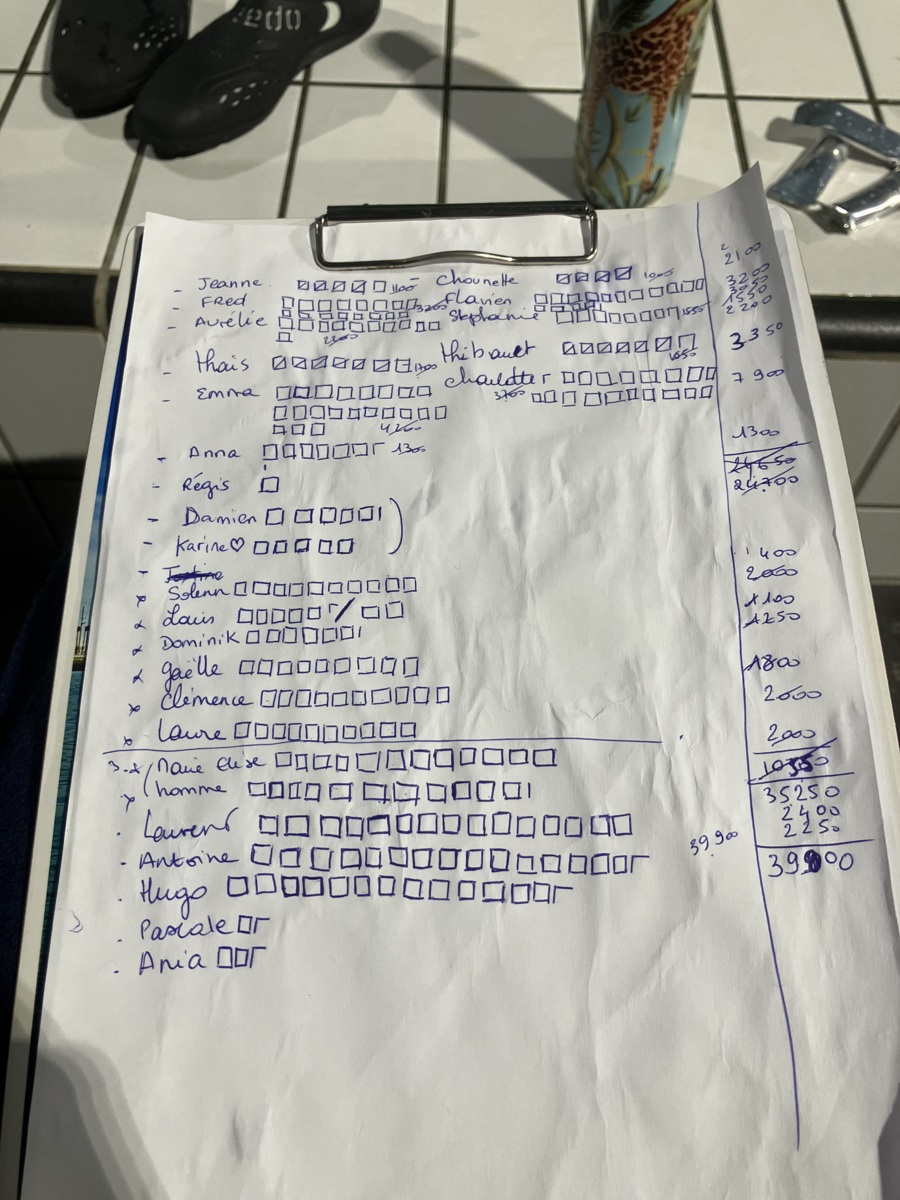 edo
- Jeanne 1100 - Chounette 1000 2100
- Fred 3200 Flavien 3200
- Aurélie 2200 Stephanie 1550 1550
2200
- Thaïs 1700 Thibault 1650 3350
- Emma 4200 Charlotte 3700 7900
- Anna 1300 1300
24650
- Régis 24700
- Damien
- Karine♡ 400
- Justine
x Solenn 2000
x Louis 1100
x Dominik 1250
x Gaëlle 1800
x Clémence 2000
x Laure 2000
Marie Elise 10350
x homme 35250
2400
2250
. Laurent 39900
- Antoine 39900
. Hugo
. Pascale
. Ania